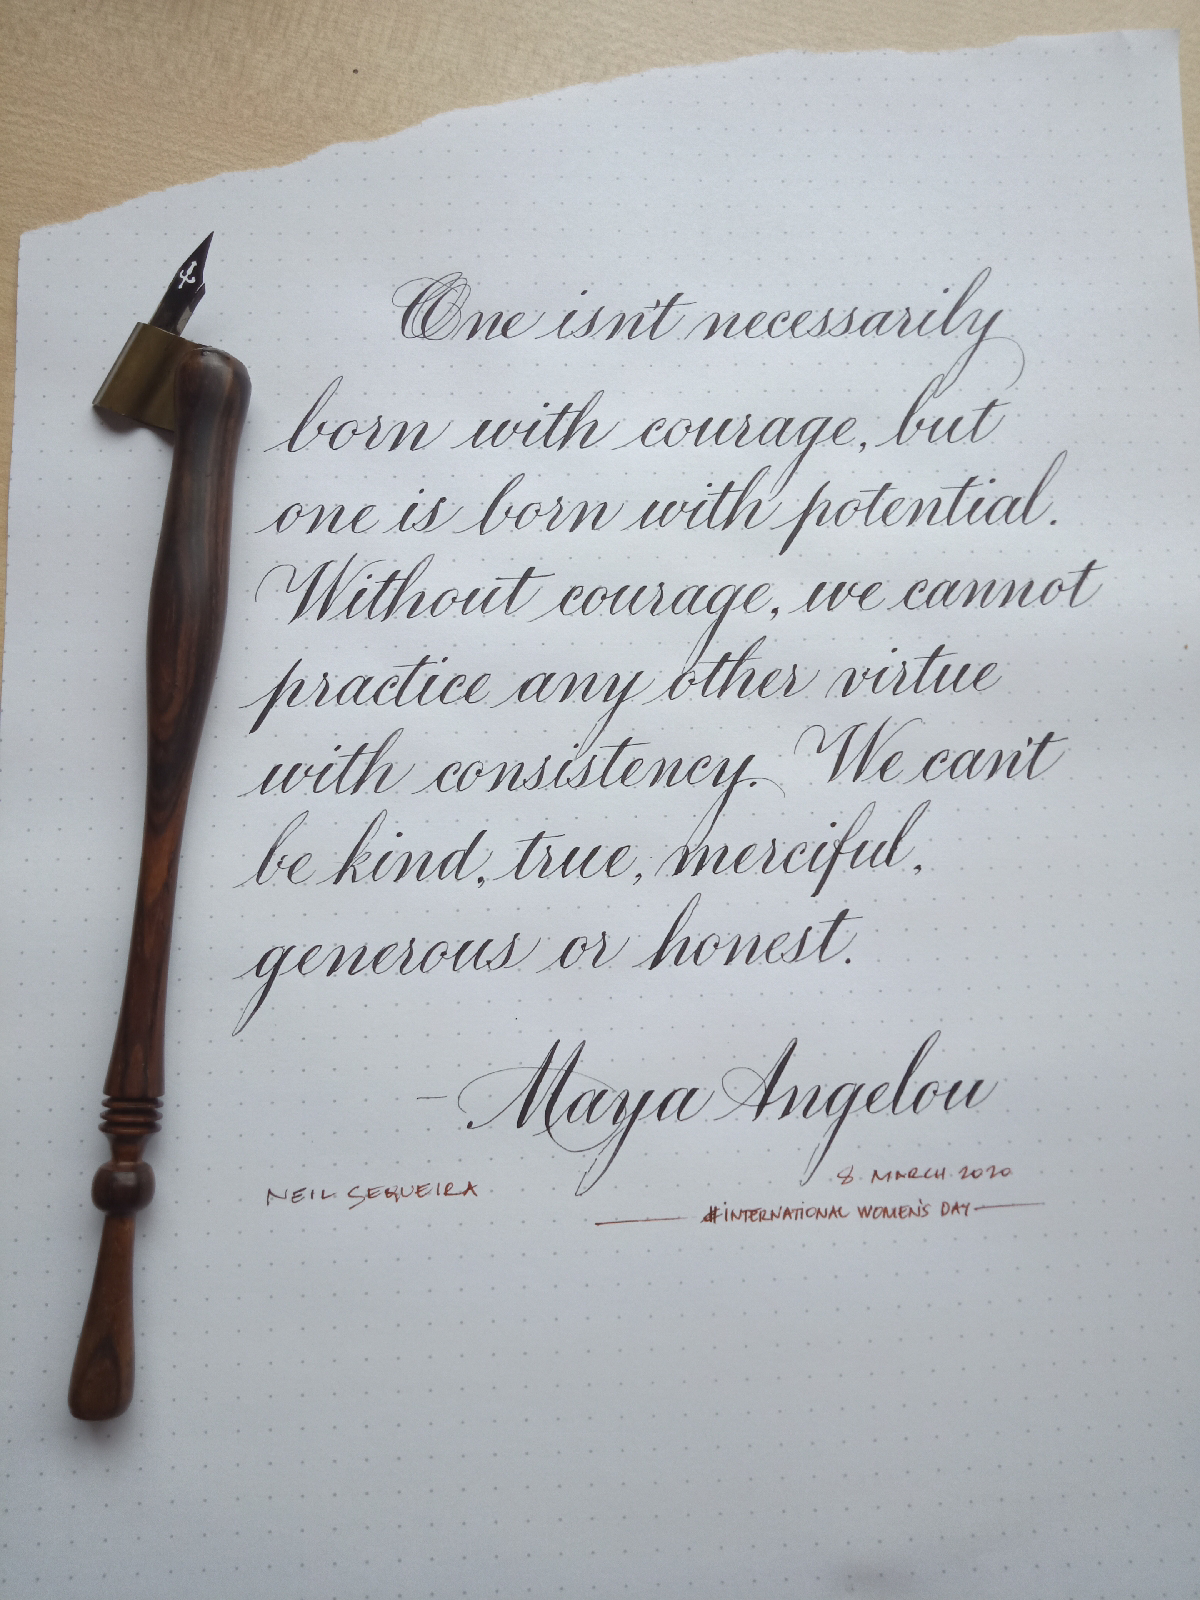 One isn't necessarily
born with courage, but
one is born with potential.
Without courage, we cannot
practice any other virtue
with consistency. We can't
be kind, true, merciful,
generous or honest.
- Maya Angelou
NEIL SEQUEIRA
8 MARCH 2020
#INTERNATIONAL WOMEN'S DAY